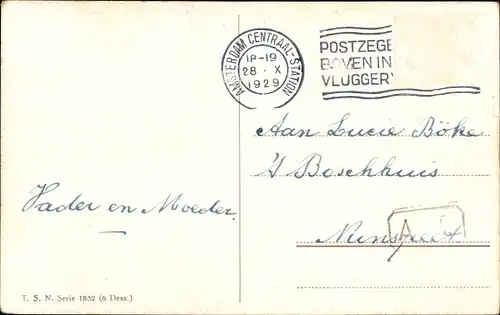 AMSTERDAM CENTRAAL-STATION
18-19
28 · X
1929
POSTZEGE
BOVEN IN
VLUGGER
Aan Lucie Böke
's Boschhuis
Nunspeet
A
Vader en Moeder.
T. S. N. Serie 1832 (6 Dess.)